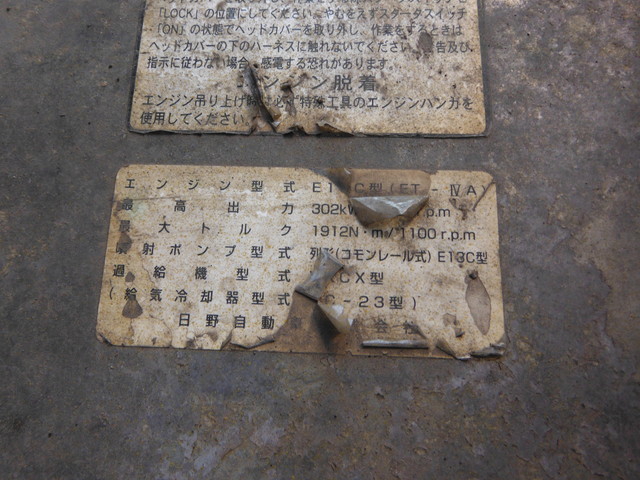 「LOCK」の位置にしてください。やむをえずスタータスイッチ
「ON」の状態でヘッドカバーを取り外し、作業をするときは
ヘッドカバーの下のハーネスに触れないでください。 告及び、
指示に従わない場合、感電する恐れがあります。
エンジン脱着
エンジン吊り上げ時は必ず特殊工具のエンジンハンガを
使用してください。
エンジン型式 E13C型(ET-ⅣA)
最高出力 302kW r.p.m
最大トルク 1912N·m/1100 r.p.m
噴射ポンプ型式 列形(コモンレール式) E13C型
過給機型式 CX型
(給気冷却器型式 C-23型)
日野自動車 会社